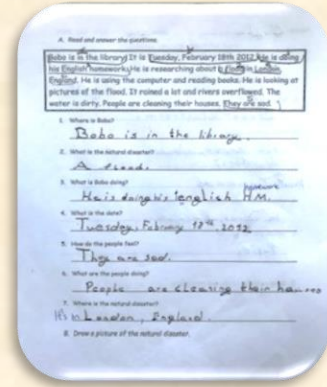 A. Read and answer the questions.
Bobo is in the library. It is Tuesday, February 18th 2012. He is doing
his English homework. He is researching about a flood in London,
England. He is using the computer and reading books. He is looking at
pictures of the flood. It rained a lot and rivers overflowed. The
water is dirty. People are cleaning their houses. They are sad.
1. Where is Bobo?
Bobo is in the library.
2. What is the natural disaster?
A flood.
3. What is Bobo doing?
homework
He is doing his english H.M.
4. What is the date?
Tuesday, February 18th, 2012
5. How do the people feel?
They are sad.
6. What are the people doing?
People are cleaning their houses
7. Where is the natural disaster?
It's in London, England.
8. Draw a picture of the natural disaster.